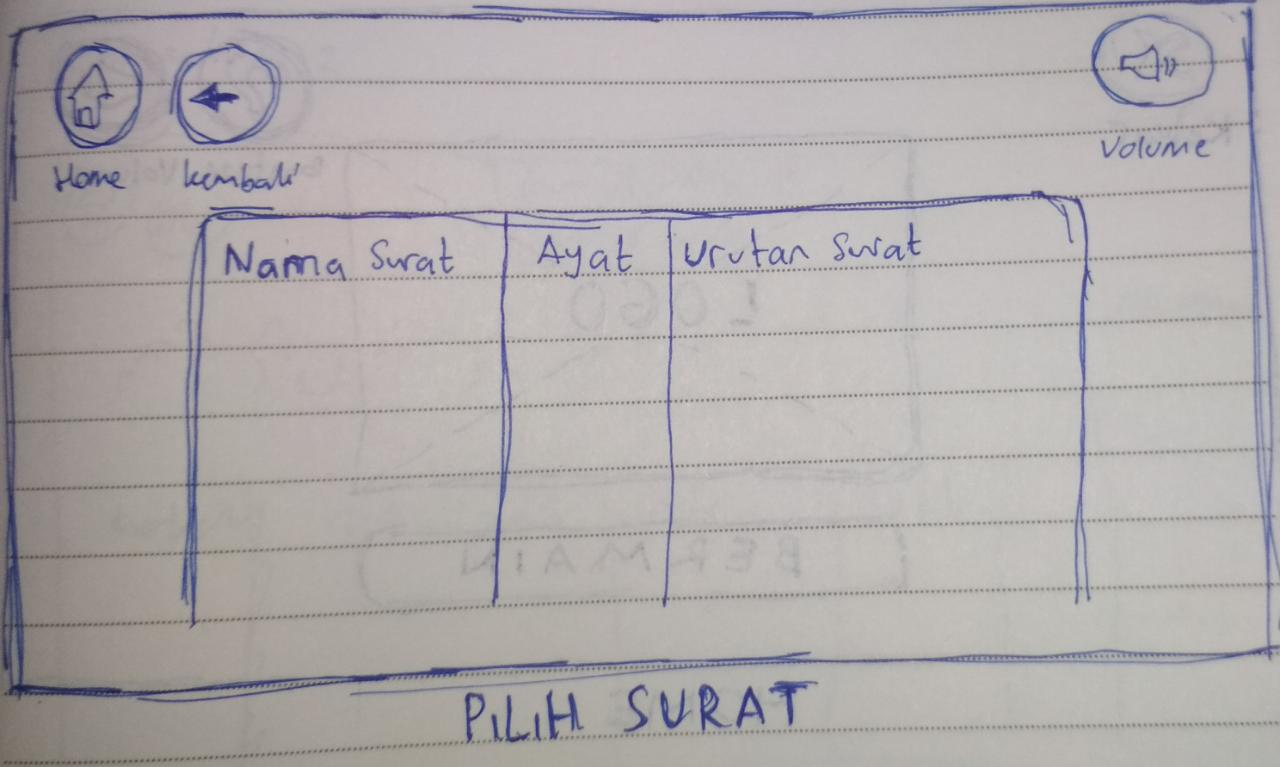 Home kembali Volume
Nama Surat Ayat Urutan Surat
LOGO
BERMAIN
PILIH SURAT